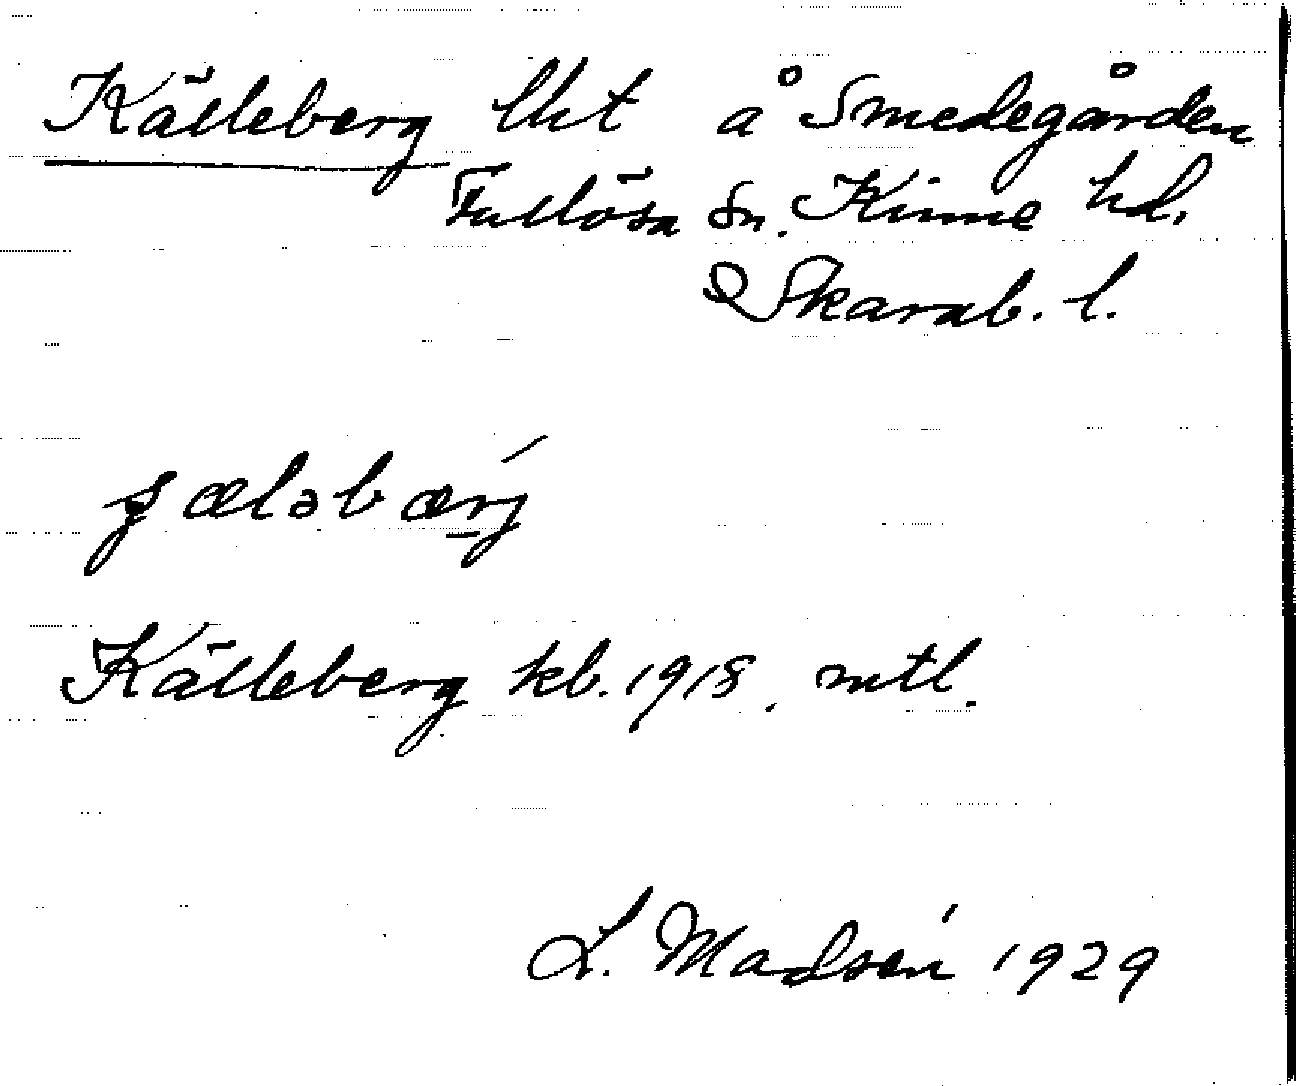 Källeberg lht å Smedegården
Fullösa sn. Kinne hd.
Skarab. l.
gæləbærj
Källeberg kb. 1918. mtl.
L. Madsén 1929